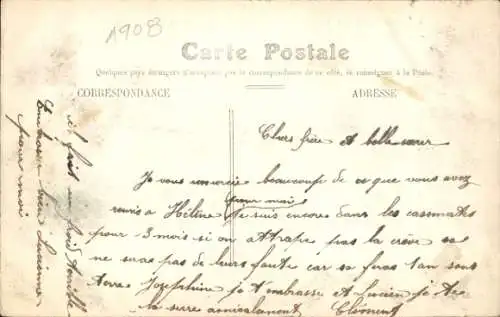 1908
Carte Postale
Quelques pays étrangers n'acceptent pas la correspondance de ce côté, se renseigner à la Poste.
CORRESPONDANCE
ADRESSE
Chers frère et belle sœur
Je vous remercie beaucoup de ce que vous avez
remis a Héline pour moi Je suis encore dans les casemates
pour 3 mois si on attrape pas la crève ce
ne sera pas de leurs faute car sa feras 1 an sous
terre Joséphine je t'embrasse et Lucien je te
la serre amicalement Clément
il fait un froid terrible
Embrasse bien Lucienne
pour moi